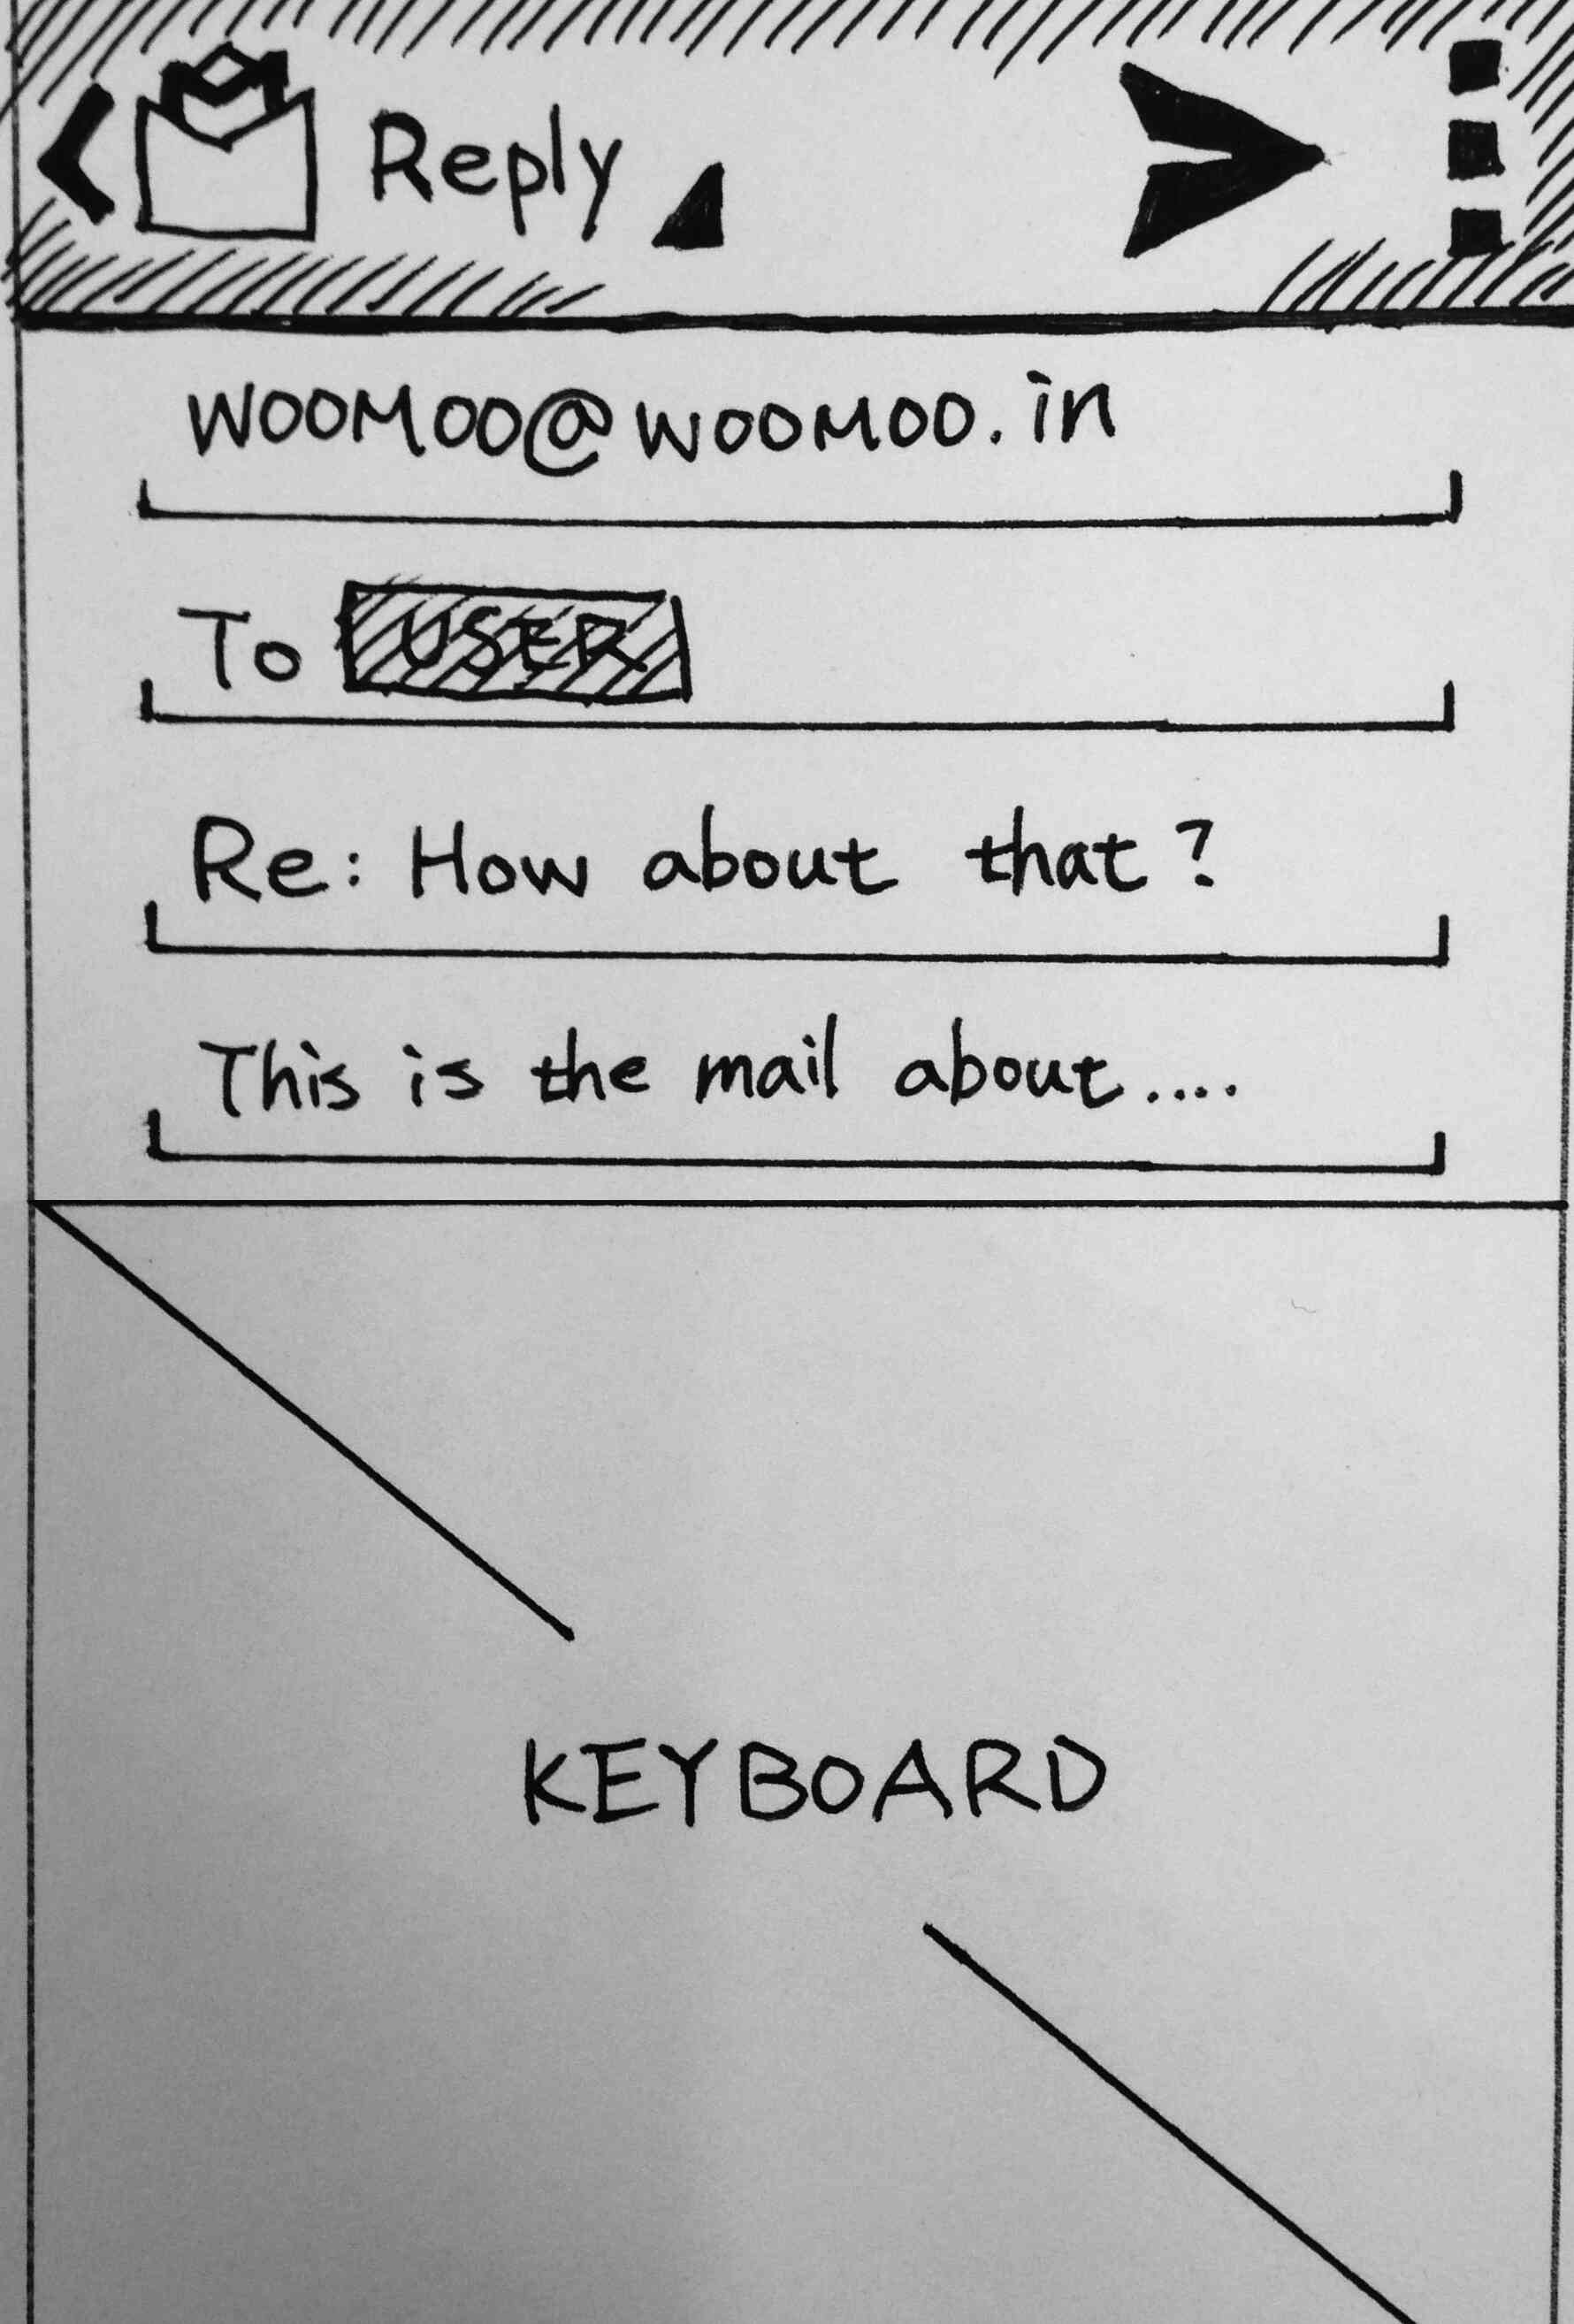 Reply
woomoo@woomoo.in
To USER
Re: How about that?
This is the mail about....
KEYBOARD